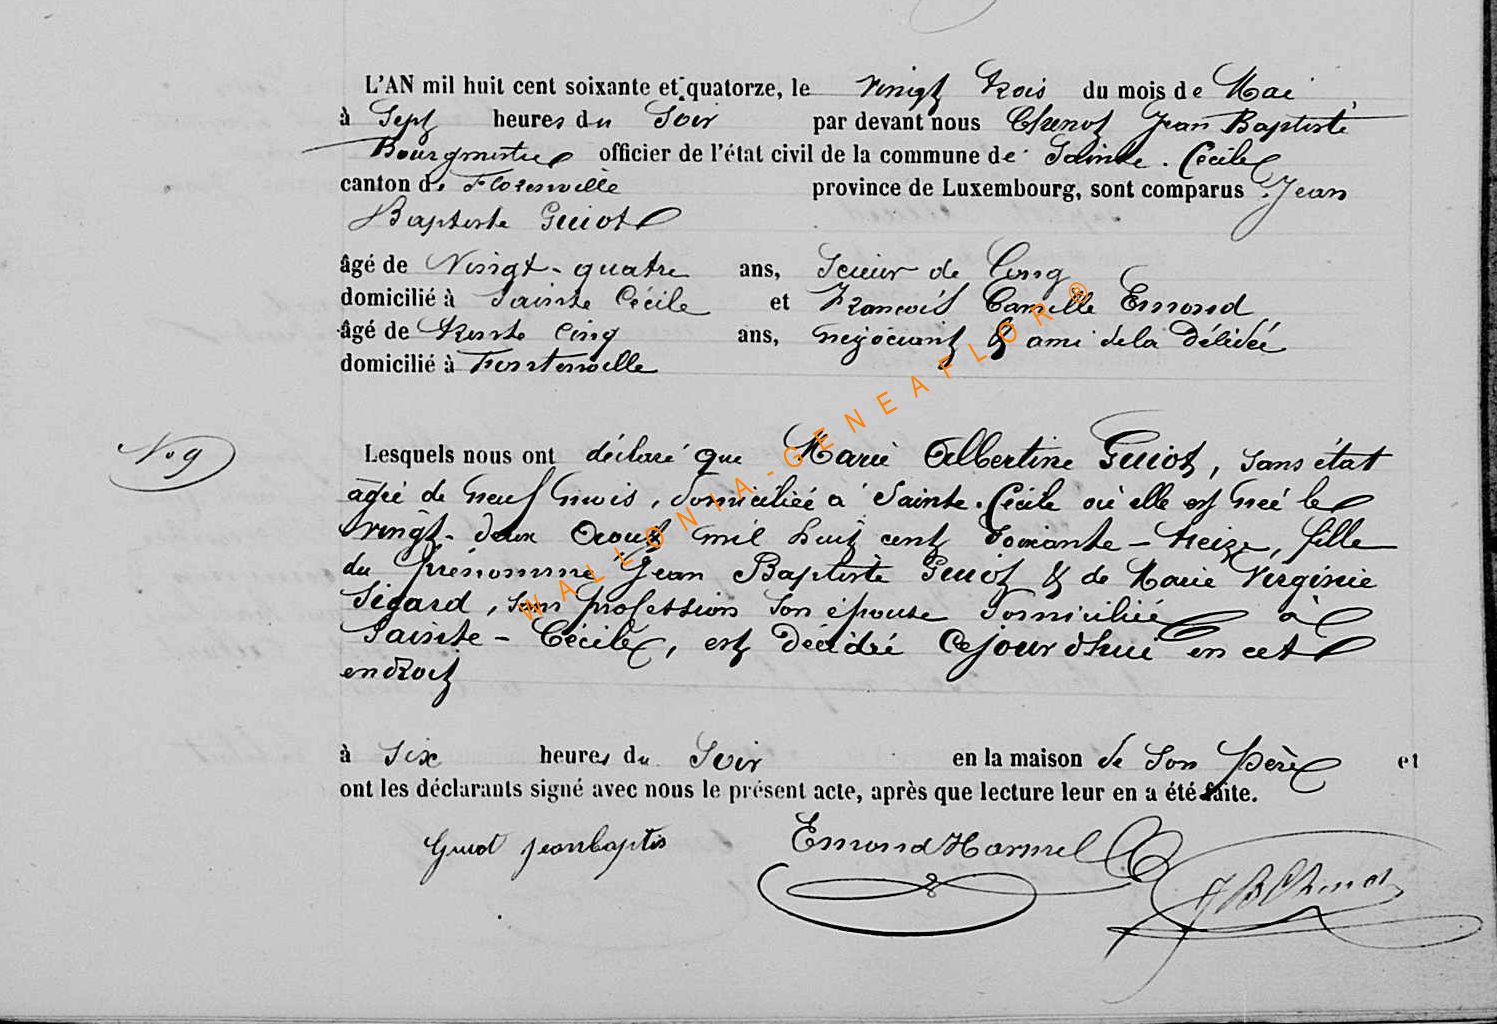 L'AN mil huit cent soixante et quatorze, le vingt trois du mois de Mai
à Sept heures du Soir par devant nous Chenot Jean Baptiste
Bourgmestre officier de l'état civil de la commune de Sainte. Cécile
canton de Florenville province de Luxembourg, sont comparus Jean
Baptiste Guiot
âgé de Vingt-quatre ans, Scieur de Long
domicilié à Sainte Cécile et François Camille Emond
âgé de trente cinq ans, négociant & ami de la Délidée
domicilié à Fontenoille
N° 9
Lesquels nous ont déclaré que Marie Albertine Guiot, sans état
agée de neuf mois, domiciliée à Sainte. Cécile où elle est née le
vingt-deux Aout mil huit cent soixante-treize, fille
du prénommé Jean Baptiste Guiot & de Marie Virginie
Sigard, sans profession son épouse domiciliée à
Sainte-Cécile, est décidée cejourd'hui en cet
endroit
à Six heures du Soir en la maison de Son père et
ont les déclarants signé avec nous le présent acte, après que lecture leur en a été faite.
Guiot jeanbaptis EmondHarmel JBChenot
WALLONIA-GENEAFLOR ®